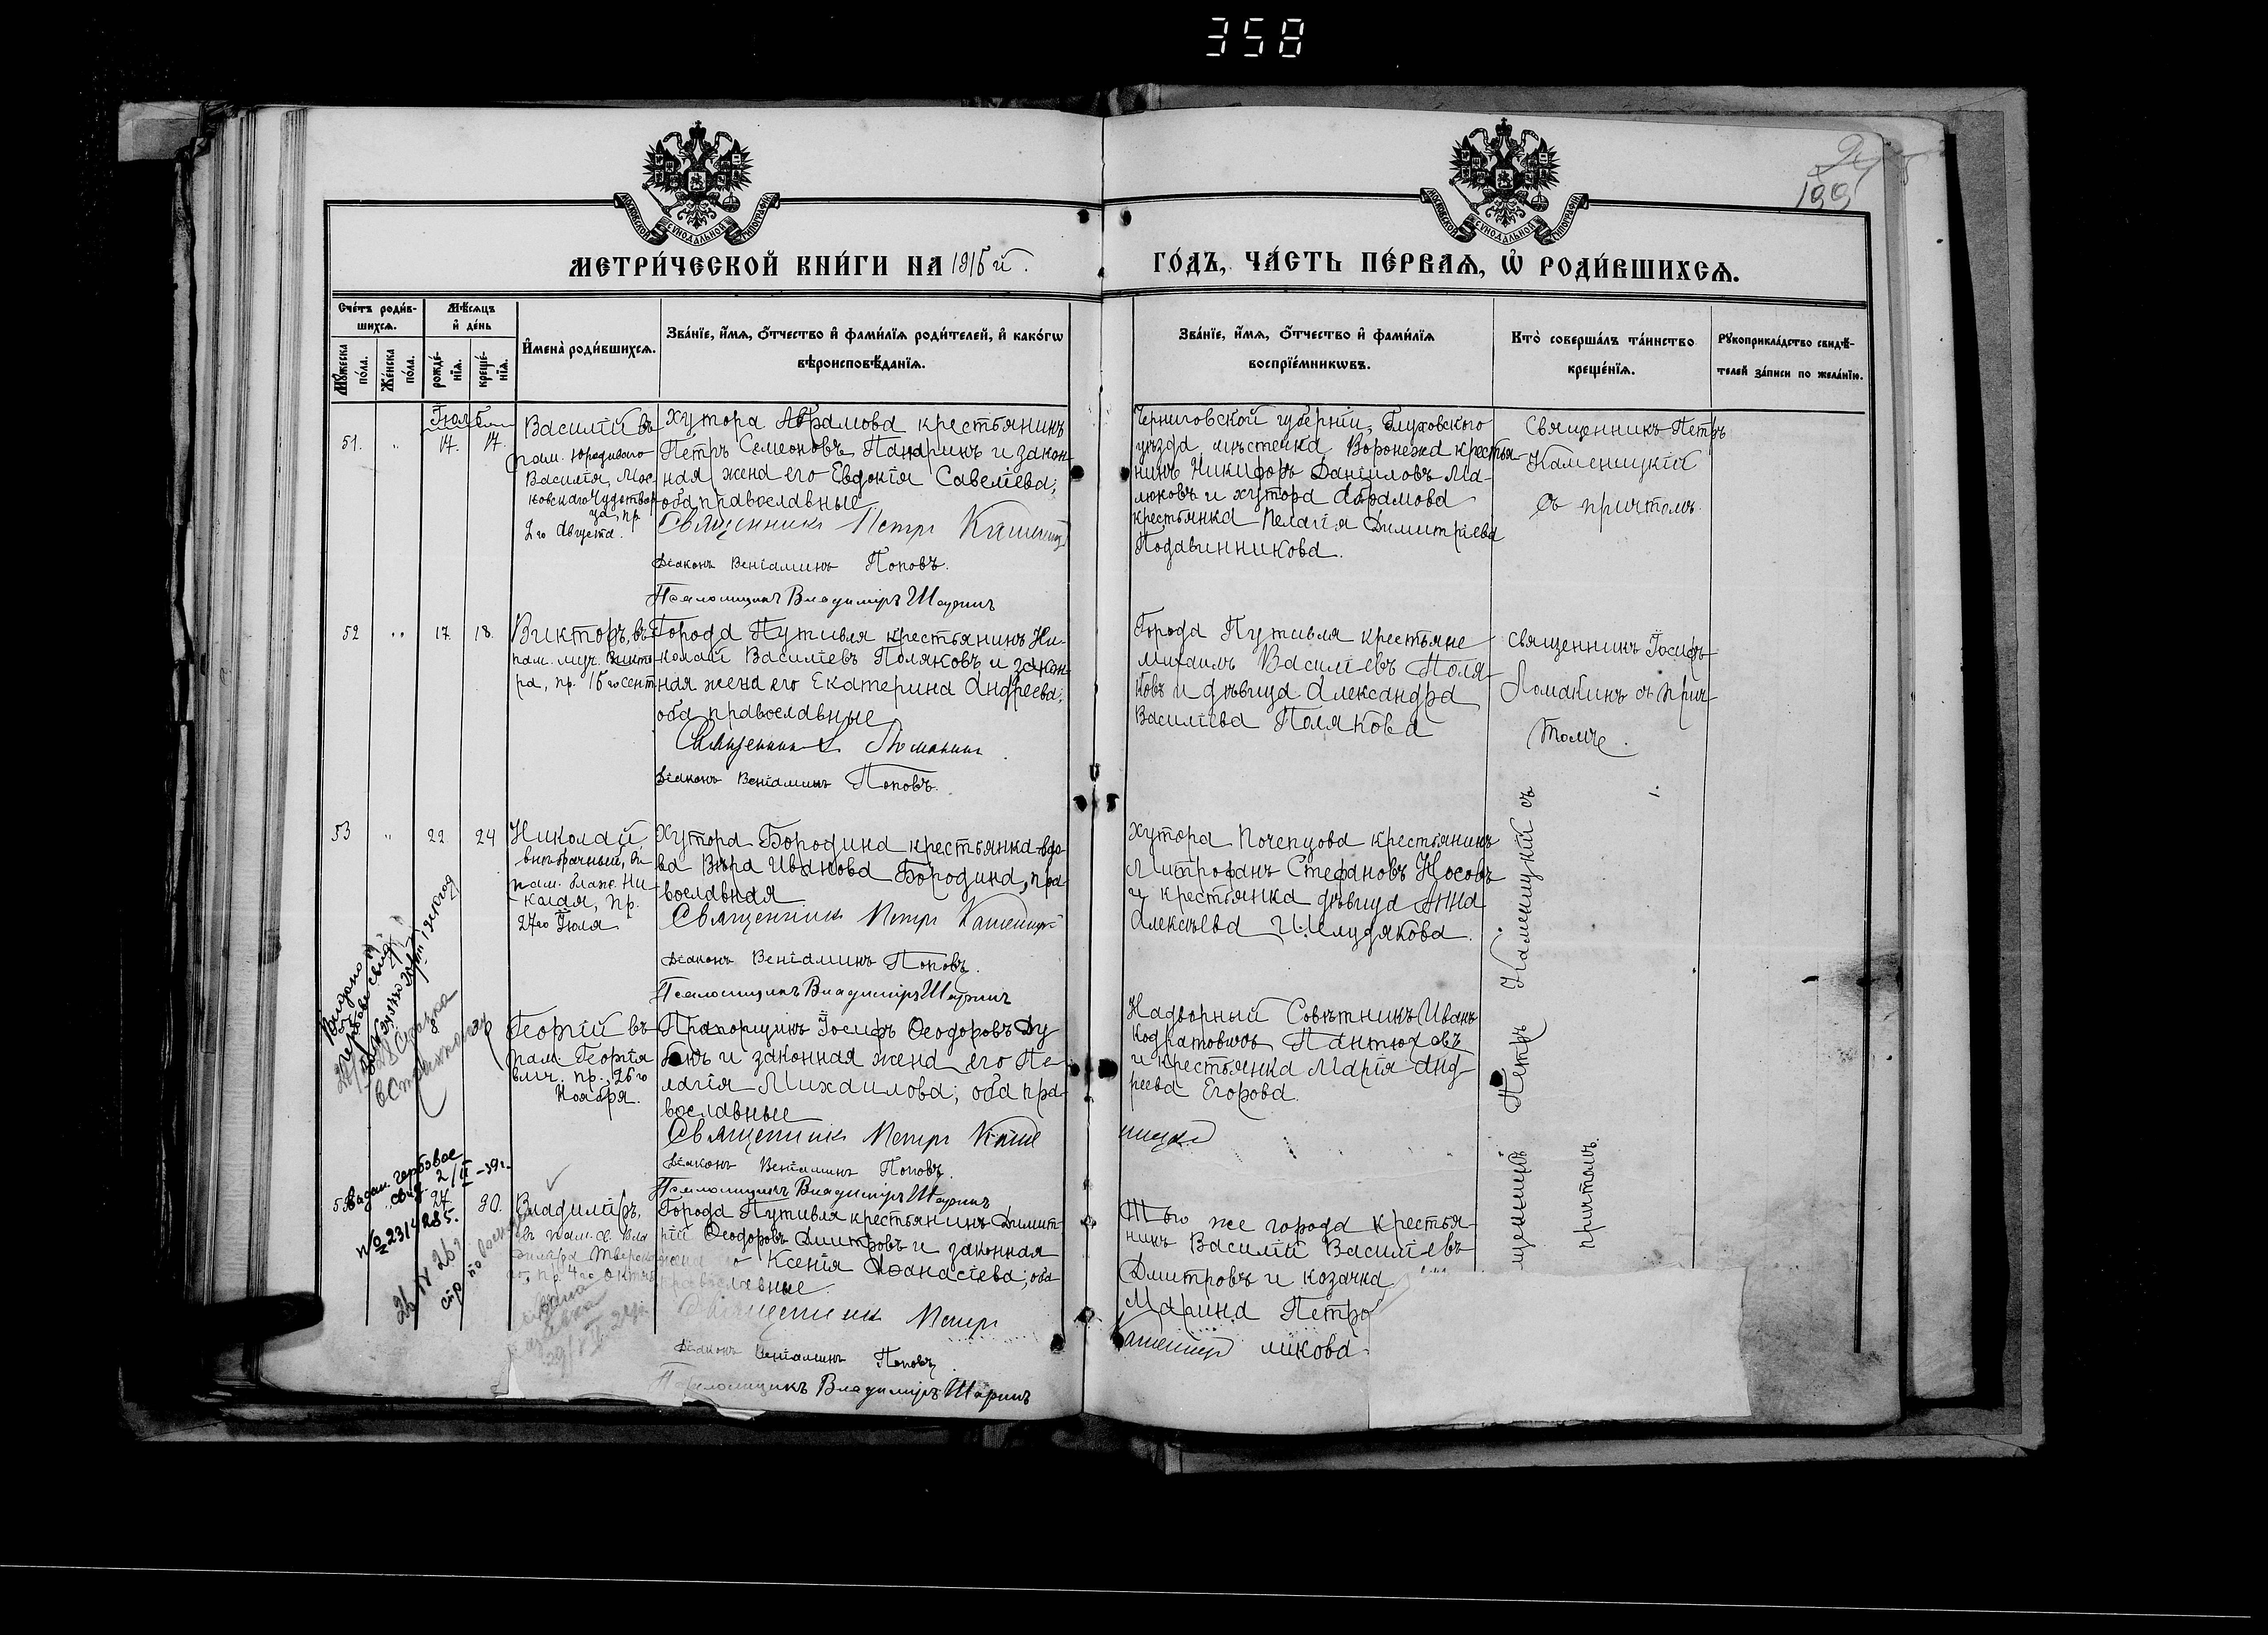 358
199
МОСКОВСКОЙ СѴНОДАЛЬНОЙ ТИПОГРАФІИ
МОСКОВСКОЙ СѴНОДАЛЬНОЙ ТИПОГРАФІИ
МЕТРИ́ЧЕСКОЙ КНИ́ГИ НА 1915 й.
ГО́ДЪ, ЧА́СТЬ ПЕ́РВАѦ, Ѡ҆ РОДИ́ВШИХСѦ.
Сче́тъ роди́в-
шихсѧ.
Мꙋжеска по́ла.
Же́нска по́ла.
Мѣ́сѧцъ
и҆ де́нь
рожде́-
нїѧ.
креще́-
нїѧ.
И҆мена̀ роди́вшихсѧ.
Зва́нїе, и҆́мѧ, ѻ҆́тчество и҆ фами́лїѧ роди́телей, и҆ како́гѡ
вѣроисповѣ́данїѧ.
Зва́нїе, и҆́мѧ, ѻ҆́тчество и҆ фами́лїѧ
воспрїе́мникѡвъ.
Кто̀ соверша́лъ та́инство
креще́нїѧ.
Рꙋкоприкла́дство свидѣ́-
телей за́писи по жела́нїю.
Іюль
51. " 17. 17.
Василій въ
пам. юродиваго
Василія, Мос-
ковскаго Чудотвор-
ца, пр.
2го Августа.
Хутора Абрамова крестьянинъ
Петръ Семеоновъ Панаринъ и закон-
ная жена его Евдокія Савеліева;
оба православные
Священникъ Петръ Каменецк
Діаконъ Веніаминъ Поповъ.
Псаломщикъ Владиміръ Шаринъ
Черниговской губерніи, Глуховского
уѣзда мѣстечка Воронежа крестья-
нинъ Никифоръ Даніиловъ Ма-
люковъ и хутора Абрамова
крестьянка Пелагія Димитріева
Подавинникова.
Священникъ Петръ
Каменицкій
съ причтомъ.
52 " 17. 18.
Викторъ, въ
пам. муч. Викто-
ра, пр. 15го сент.
Города Путивля крестьянинъ Ни-
колай Василіевъ Поляковъ и закон-
ная жена его Екатерина Андреева;
оба православные
Священникъ Ломакинъ
Діаконъ Веніаминъ Поповъ.
Города Путивля крестьяне
Михаилъ Василіевъ Поля-
ковъ и дѣвица Александра
Василіева Полякова
Священникъ Іосифъ
Ломакинъ съ прич-
томъ.
53 " 22 24
Николай
внѣбрачный, въ
пам. блаж. Ни-
колая, пр.
27го Іюля
Хутора Бородина крестьянка вдо-
ва Вѣра Иванова Бородина, пра-
вославная
Священникъ Петръ Каменицкій
Діаконъ Веніаминъ Поповъ.
Псаломщикъ Владиміръ Шаринъ
Хутора Почепцова крестьянинъ
Митрофанъ Стефановъ Носовъ
и крестьянка дѣвица Анна
Алексѣева Шелудякова.
Георгій въ
пам. Георгія
влмч, пр., 26го
Ноября.
Прапорщикъ Іосифъ Ѳеодоровъ Ду
бкъ и законная жена его Пе-
лагія Михаилова; оба пра-
вославные
Священникъ Петръ Каме
ницкій
Діаконъ Веніаминъ Поповъ.
Псаломщикъ Владиміръ Шаринъ
Надворный Совѣтникъ Иванъ
Кодратовичъ Пантюховъ
и крестьянка Марія Анд-
реева Егорова.
щенникъ Петръ Каменицкій съ
причтомъ.
Выдан. гербовое
свид. 2/II -39г.
№ 2314285.
27 30.
Владиміръ,
Города Путивля крестьянинъ Димит-
рій Ѳеодоровъ Дмитровъ и законная
Ксенія Аѳанасіева; оба
православные.
Священникъ Петръ
Діаконъ Веніаминъ Поповъ.
Псаломщикъ Владиміръ Шаринъ
Того же города крестья-
нинъ Василій Василіевъ
Дмитровъ и козачка
Марина Петро
ликова